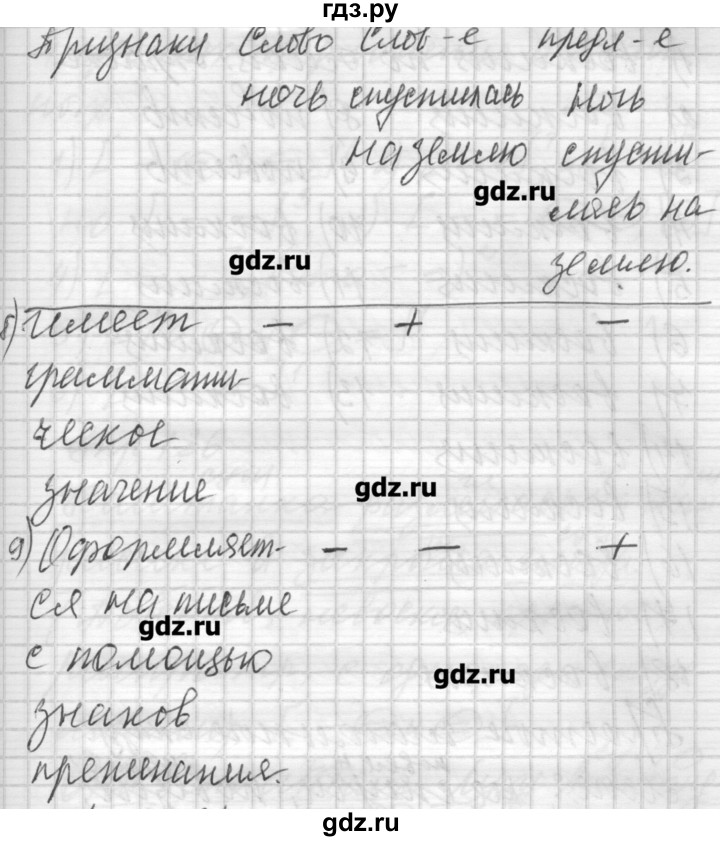 гдз.ру
Признаки Слово Слов-е предл-е
ночь спустилась Ночь
на землю спусти-
gdz.ru
лась на
gdz.ru
землю.
б) Имеет - + -
граммати-
ческое
значение
gdz.ru
9) Оформляет- - - +
ся на письме
gdz.ru
с помощью
gdz.ru
знаков
препинания.
gdz.ru